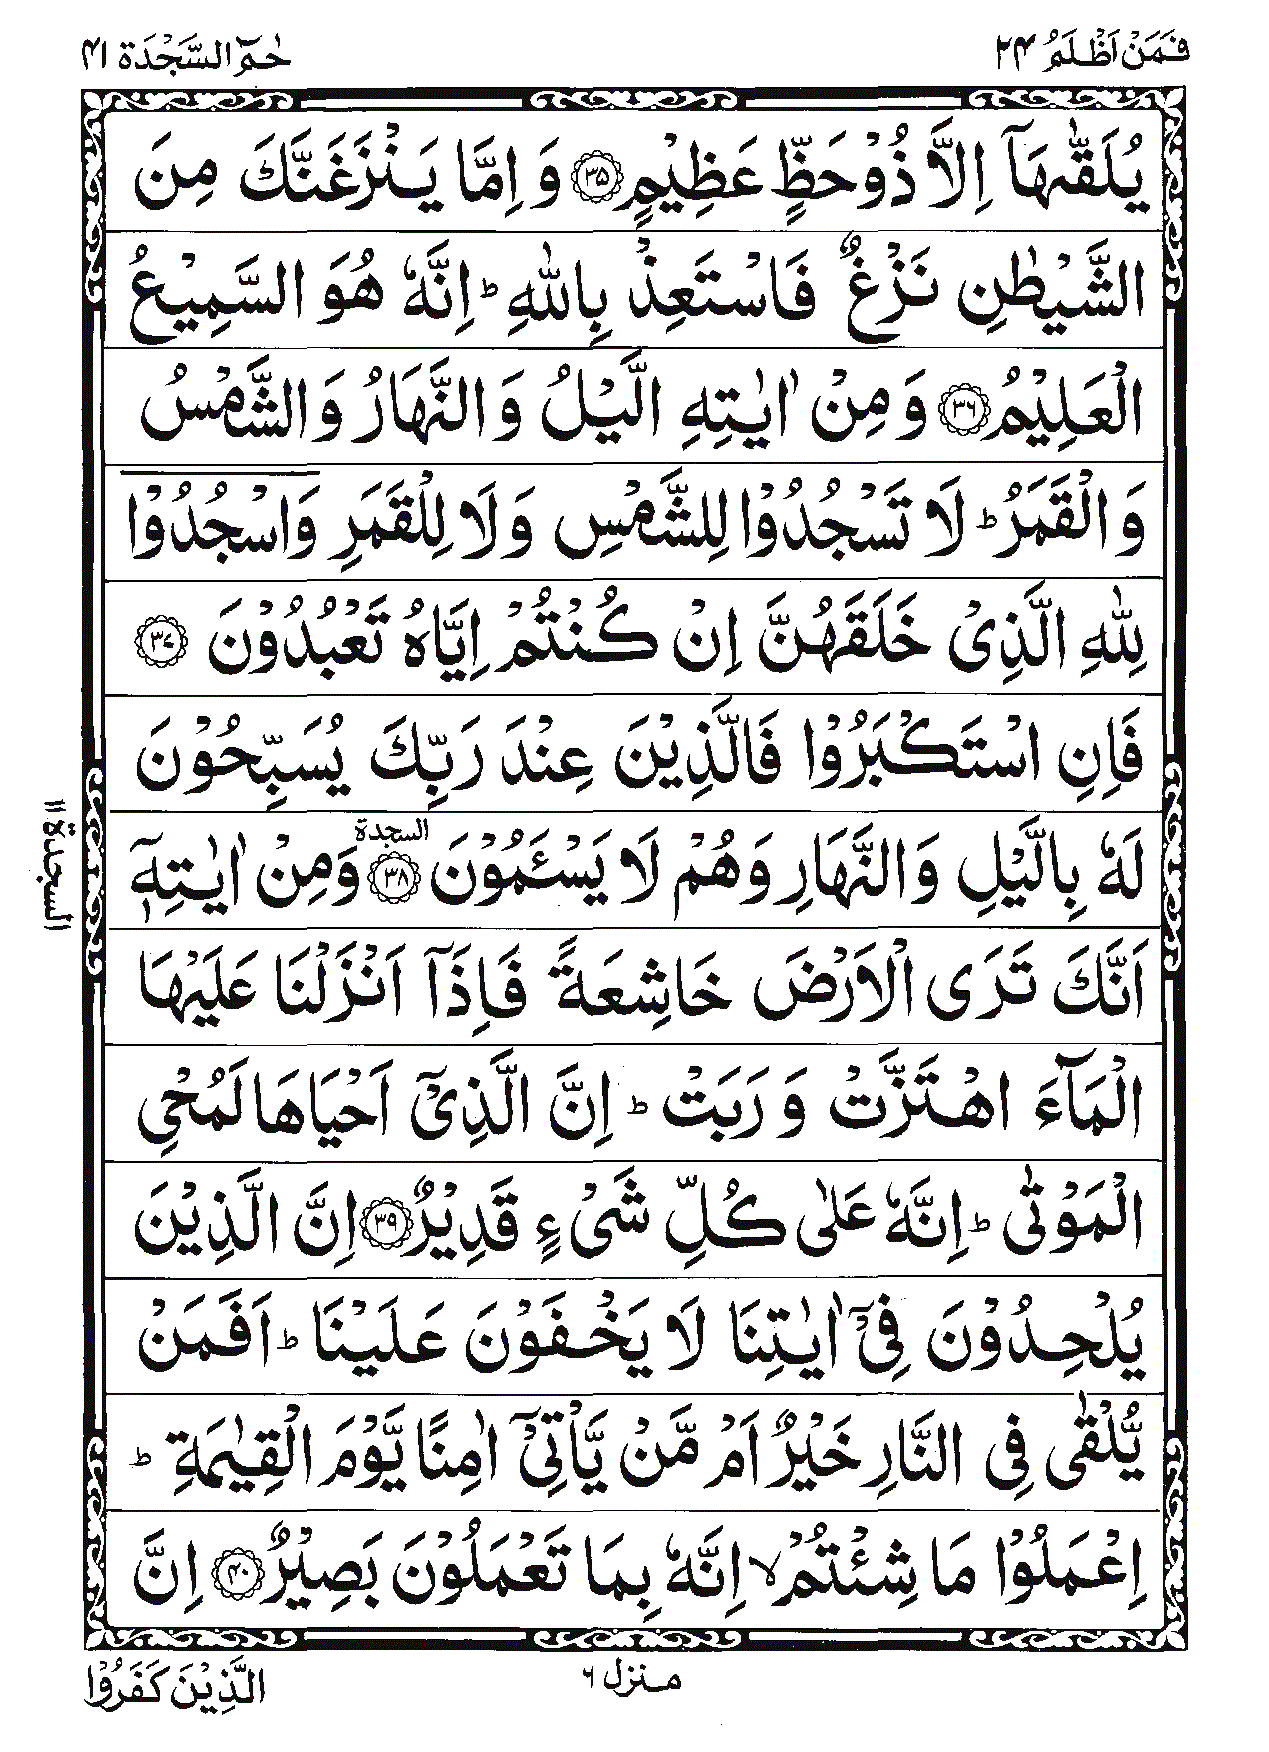 فَمَنْ اَظْلَمُ ۲۴
حٰمٓ السَّجْدَة ۴۱
يُلَقّٰىهَاۤ اِلَّا ذُوْ حَظٍّ عَظِيْمٍ ۝۳۵ وَ اِمَّا يَنْزَغَنَّكَ مِنَ
الشَّيْطٰنِ نَزْغٌ فَاسْتَعِذْ بِاللّٰهِ ؕ اِنَّهٗ هُوَ السَّمِيْعُ
الْعَلِيْمُ ۝۳۶ وَ مِنْ اٰيٰتِهِ الَّيْلُ وَ النَّهَارُ وَ الشَّمْسُ
وَ الْقَمَرُ ؕ لَا تَسْجُدُوْا لِلشَّمْسِ وَ لَا لِلْقَمَرِ وَ اسْجُدُوْا
لِلّٰهِ الَّذِيْ خَلَقَهُنَّ اِنْ كُنْتُمْ اِيَّاهُ تَعْبُدُوْنَ ۝۳۷
فَاِنِ اسْتَكْبَرُوْا فَالَّذِيْنَ عِنْدَ رَبِّكَ يُسَبِّحُوْنَ
لَهٗ بِالَّيْلِ وَ النَّهَارِ وَ هُمْ لَا يَسْـَٔمُوْنَ ۝۳۸ السجدة وَ مِنْ اٰيٰتِهٖۤ
السجدة ۱۱
اَنَّكَ تَرَى الْاَرْضَ خَاشِعَةً فَاِذَاۤ اَنْزَلْنَا عَلَيْهَا
الْمَآءَ اهْتَزَّتْ وَ رَبَتْ ؕ اِنَّ الَّذِيْۤ اَحْيَاهَا لَمُحْيِ
الْمَوْتٰى ؕ اِنَّهٗ عَلٰى كُلِّ شَيْءٍ قَدِيْرٌ ۝۳۹ اِنَّ الَّذِيْنَ
يُلْحِدُوْنَ فِيْۤ اٰيٰتِنَا لَا يَخْفَوْنَ عَلَيْنَا ؕ اَفَمَنْ
يُّلْقٰى فِي النَّارِ خَيْرٌ اَمْ مَّنْ يَّاْتِيْۤ اٰمِنًا يَّوْمَ الْقِيٰمَةِ ؕ
اِعْمَلُوْا مَا شِئْتُمْ ۙ اِنَّهٗ بِمَا تَعْمَلُوْنَ بَصِيْرٌ ۝۴۰ اِنَّ
منزل ۶
الَّذِيْنَ كَفَرُوْا